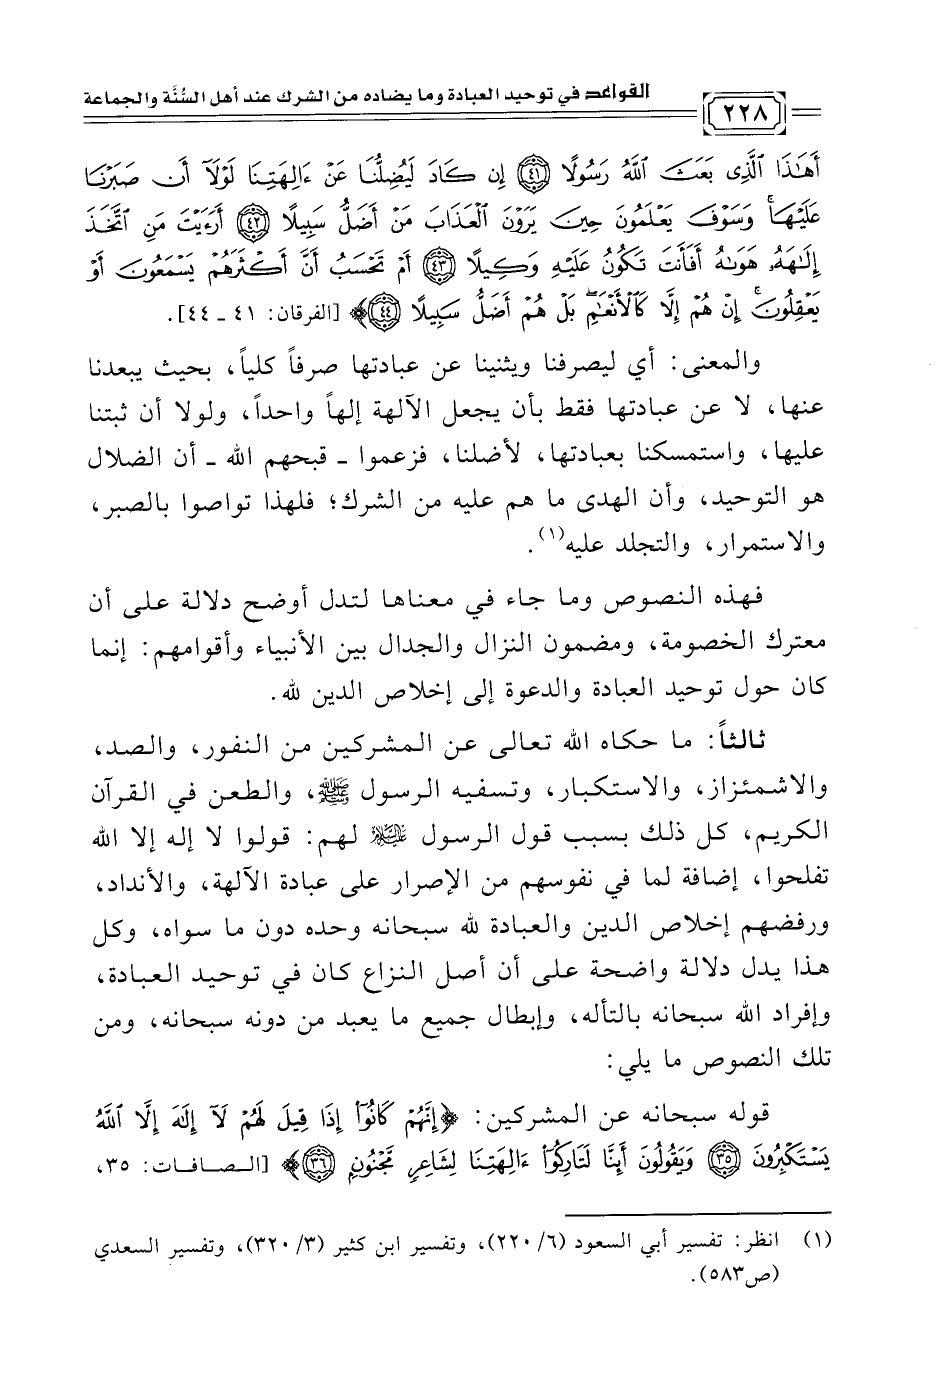 القواعد في توحيد العبادة وما يضاده من الشرك عند أهل السُّنَّة والجماعة
٢٢٨
أَهَٰذَا ٱلَّذِى بَعَثَ ٱللَّهُ رَسُولًا ﴿٤١﴾ إِن كَادَ لَيُضِلُّنَا عَنْ ءَالِهَتِنَا لَوْلَآ أَن صَبَرْنَا
عَلَيْهَا ۚ وَسَوْفَ يَعْلَمُونَ حِينَ يَرَوْنَ ٱلْعَذَابَ مَنْ أَضَلُّ سَبِيلًا ﴿٤٢﴾ أَرَءَيْتَ مَنِ ٱتَّخَذَ
إِلَٰهَهُۥ هَوَىٰهُ أَفَأَنتَ تَكُونُ عَلَيْهِ وَكِيلًا ﴿٤٣﴾ أَمْ تَحْسَبُ أَنَّ أَكْثَرَهُمْ يَسْمَعُونَ أَوْ
يَعْقِلُونَ ۚ إِنْ هُمْ إِلَّا كَٱلْأَنْعَٰمِ ۖ بَلْ هُمْ أَضَلُّ سَبِيلًا ﴿٤٤﴾﴾ [الفرقان: ٤١ ـ ٤٤].
والمعنى: أي ليصرفنا ويثنينا عن عبادتها صرفاً كلياً، بحيث يبعدنا
عنها، لا عن عبادتها فقط بأن يجعل الآلهة إلهاً واحداً، ولولا أن ثبتنا
عليها، واستمسكنا بعبادتها، لأضلنا، فزعموا ـ قبحهم الله ـ أن الضلال
هو التوحيد، وأن الهدى ما هم عليه من الشرك؛ فلهذا تواصوا بالصبر،
والاستمرار، والتجلد عليه(١).
فهذه النصوص وما جاء في معناها لتدل أوضح دلالة على أن
معترك الخصومة، ومضمون النزال والجدال بين الأنبياء وأقوامهم: إنما
كان حول توحيد العبادة والدعوة إلى إخلاص الدين لله.
ثالثاً: ما حكاه الله تعالى عن المشركين من النفور، والصد،
والاشمئزاز، والاستكبار، وتسفيه الرسول ﷺ، والطعن في القرآن
الكريم، كل ذلك بسبب قول الرسول عليه السلام لهم: قولوا لا إله إلا الله
تفلحوا، إضافة لما في نفوسهم من الإصرار على عبادة الآلهة، والأنداد،
ورفضهم إخلاص الدين والعبادة لله سبحانه وحده دون ما سواه، وكل
هذا يدل دلالة واضحة على أن أصل النزاع كان في توحيد العبادة،
وإفراد الله سبحانه بالتأله، وإبطال جميع ما يعبد من دونه سبحانه، ومن
تلك النصوص ما يلي:
قوله سبحانه عن المشركين: ﴿إِنَّهُمْ كَانُوٓا۟ إِذَا قِيلَ لَهُمْ لَآ إِلَٰهَ إِلَّا ٱللَّهُ
يَسْتَكْبِرُونَ ﴿٣٥﴾ وَيَقُولُونَ أَئِنَّا لَتَارِكُوٓا۟ ءَالِهَتِنَا لِشَاعِرٍ مَّجْنُونٍۭ ﴿٣٦﴾﴾ [الصافات: ٣٥،
(١) انظر: تفسير أبي السعود (٦/ ٢٢٠)، وتفسير ابن كثير (٣/ ٣٢٠)، وتفسير السعدي
(ص٥٨٣).